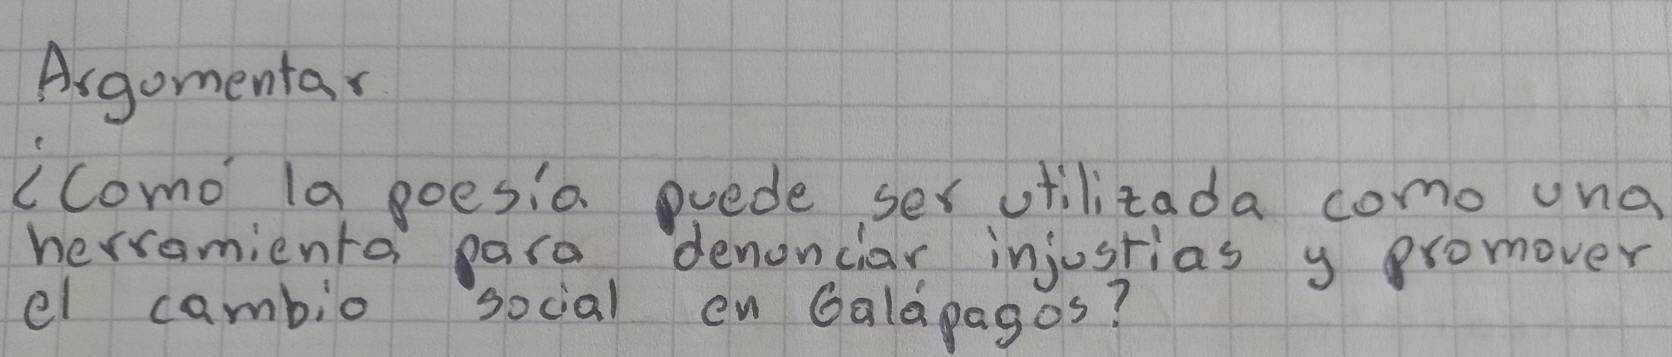 Argumentar
¿Comó la poesía puede ser utilizada como una
herramienta para denunciar injustias y promover
el cambio social en Galápagos?